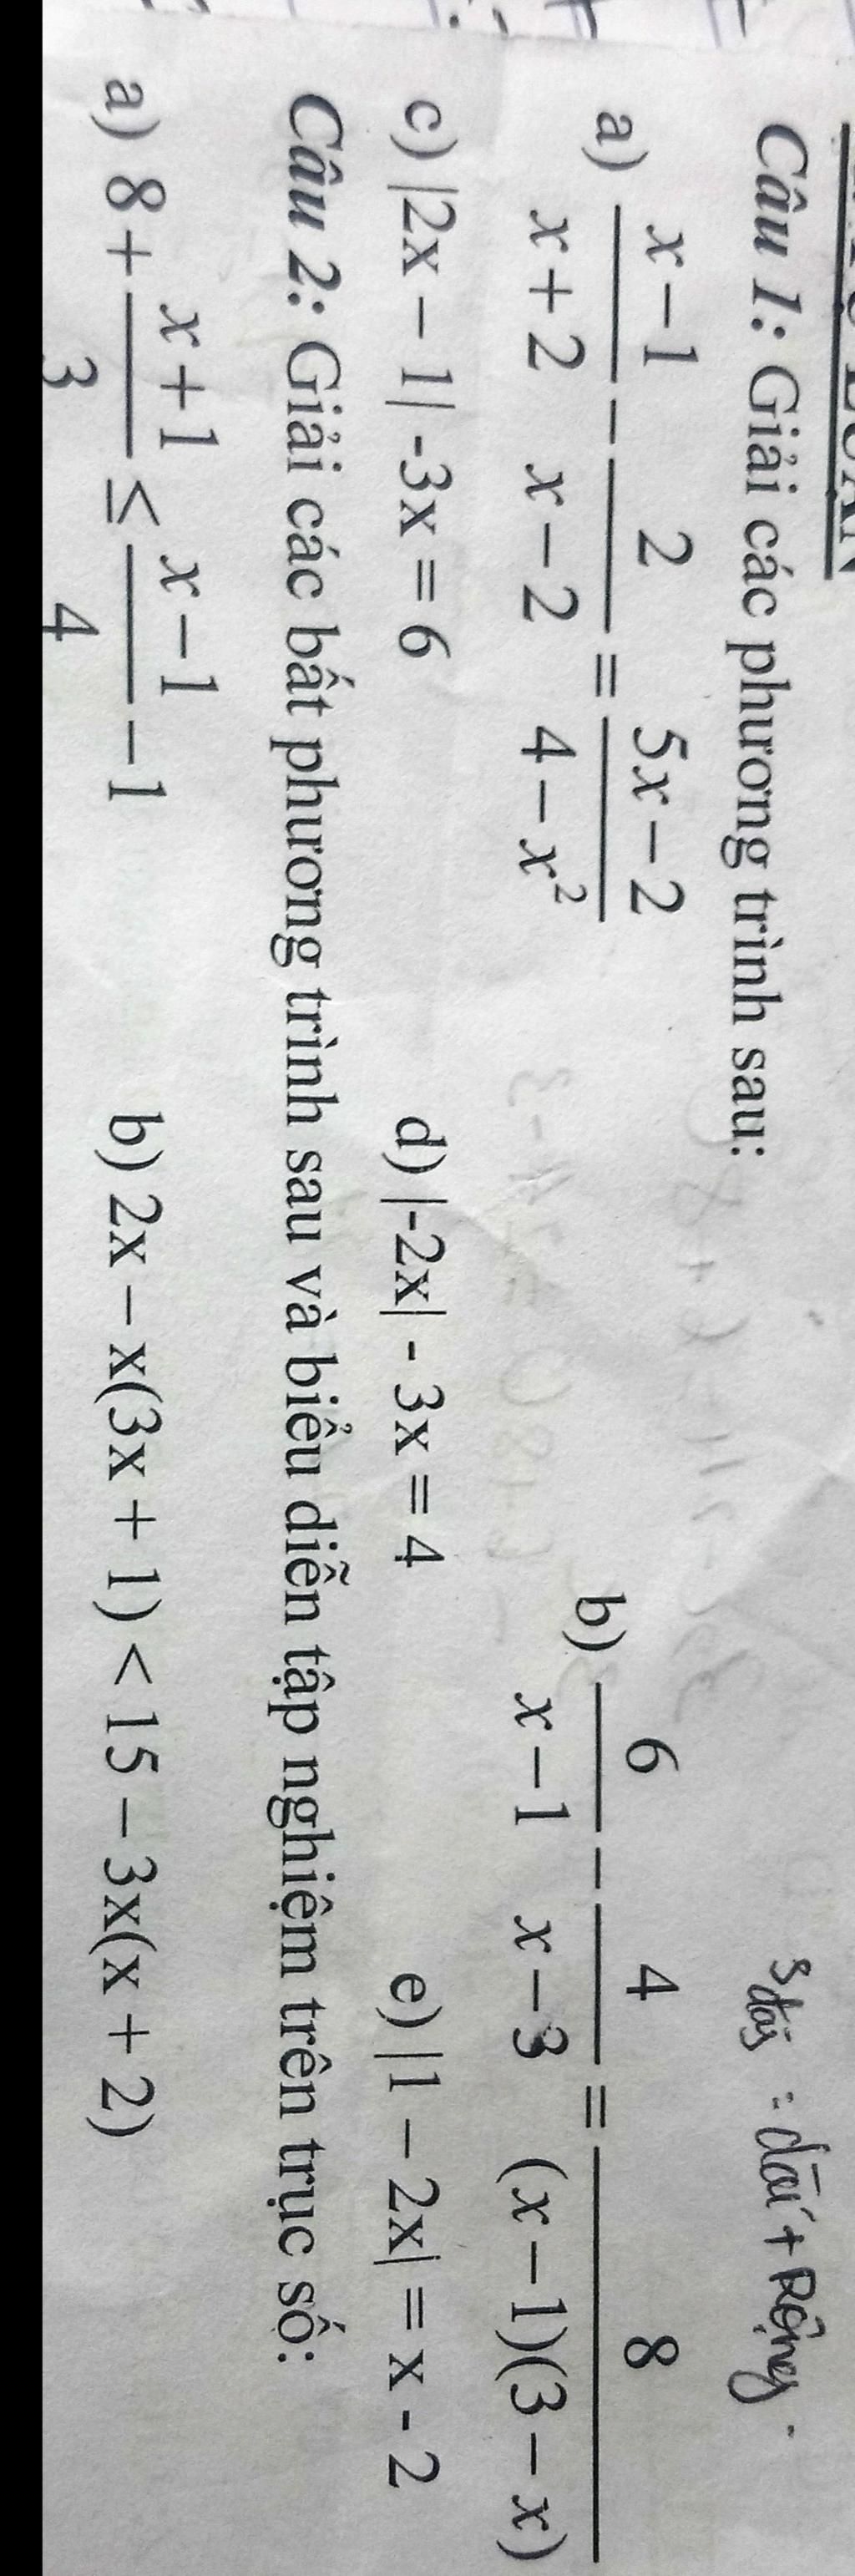 Câu 1: Giải các phương trình sau:
3 đai = dài + Rộng.
a) \frac{x-1}{x+2} - \frac{2}{x-2} = \frac{5x-2}{4-x^2} b) \frac{6}{x-1} - \frac{4}{x-3} = \frac{8}{(x-1)(3-x)}
c) |2x – 1| -3x = 6 d) |-2x| - 3x = 4 e) |1 – 2x| = x - 2
Câu 2: Giải các bất phương trình sau và biểu diễn tập nghiệm trên trục số:
a) 8 + \frac{x+1}{3} ≤ \frac{x-1}{4} - 1 b) 2x – x(3x + 1) < 15 – 3x(x + 2)